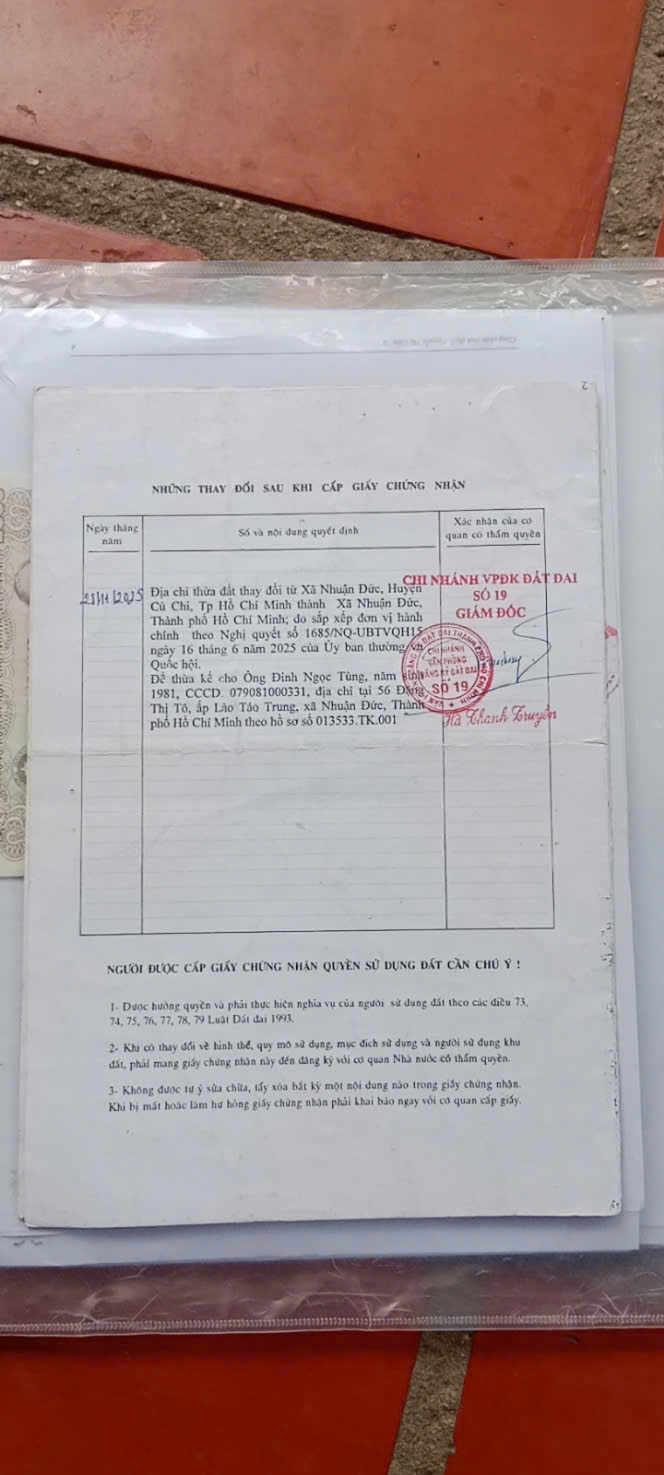 2
NHỮNG THAY ĐỔI SAU KHI CẤP GIẤY CHỨNG NHẬN
Ngày tháng năm
Số và nội dung quyết định
Xác nhận của cơ quan có thẩm quyền
21/11/2025
Địa chỉ thửa đất thay đổi từ Xã Nhuận Đức, Huyện
Củ Chi, Tp Hồ Chí Minh thành Xã Nhuận Đức,
Thành phố Hồ Chí Minh; do sắp xếp đơn vị hành
chính theo Nghị quyết số 1685/NQ-UBTVQH15
ngày 16 tháng 6 năm 2025 của Ủy ban thường vụ
Quốc hội.
Để thừa kế cho Ông Đinh Ngọc Tùng, năm sinh
1981, CCCD. 079081000331, địa chỉ tại 56 Đặng
Thị Tô, ấp Lào Táo Trung, xã Nhuận Đức, Thành
phố Hồ Chí Minh theo hồ sơ số 013533.TK.001
CHI NHÁNH VPĐK ĐẤT ĐAI
SỐ 19
GIÁM ĐỐC
CHI NHÁNH
VĂN PHÒNG
ĐĂNG KÝ ĐẤT ĐAI
SỐ 19
Hà Thanh Truyền
NGƯỜI ĐƯỢC CẤP GIẤY CHỨNG NHẬN QUYỀN SỬ DỤNG ĐẤT CẦN CHÚ Ý !
1- Được hưởng quyền và phải thực hiện nghĩa vụ của người sử dụng đất theo các điều 73,
74, 75, 76, 77, 78, 79 Luật Đất đai 1993.
2- Khi có thay đổi về hình thể, quy mô sử dụng, mục đích sử dụng và người sử dụng khu
đất, phải mang giấy chứng nhận này đến đăng ký với cơ quan Nhà nước có thẩm quyền.
3- Không được tự ý sửa chữa, tẩy xóa bất kỳ một nội dung nào trong giấy chứng nhận.
Khi bị mất hoặc làm hư hỏng giấy chứng nhận phải khai báo ngay với cơ quan cấp giấy.